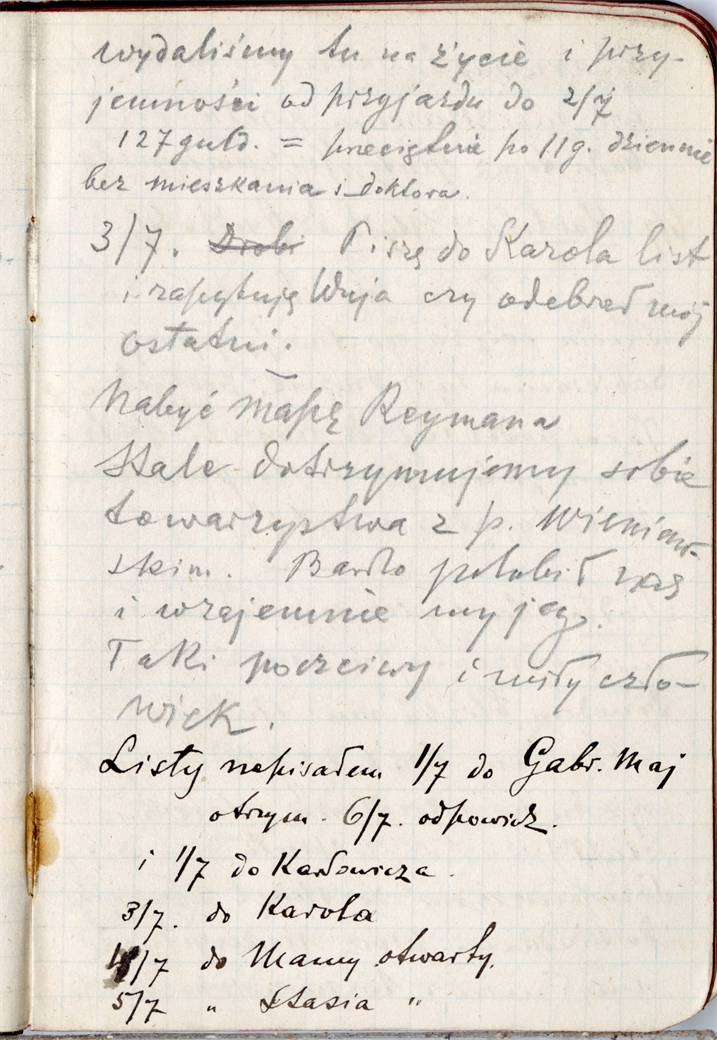 wydaliśmy tu na życie i przy-
jemności od przyjazdu do 2/7
127 guld. = przeciętnie po 11 g. dziennie
bez mieszkania i doktora.
3/7. Drobi Piszę do Karola list
i zapytuję Wuja czy odebrał mój
ostatni.
Nabyć mapę Reymana
Stale dotrzymujemy sobie
towarzystwa z p. Wieniaw-
skim. Bardzo polubił nas
i wzajemnie my jego.
Taki poczciwy i miły czło-
wiek.
Listy napisałem 1/7 do Gabr. Maj
otrzym. 6/7. odpowiedź.
i 1/7 do Karłowicza.
3/7. do Karola
4/7 do Mamy otwarty.
5/7 " Stasia "